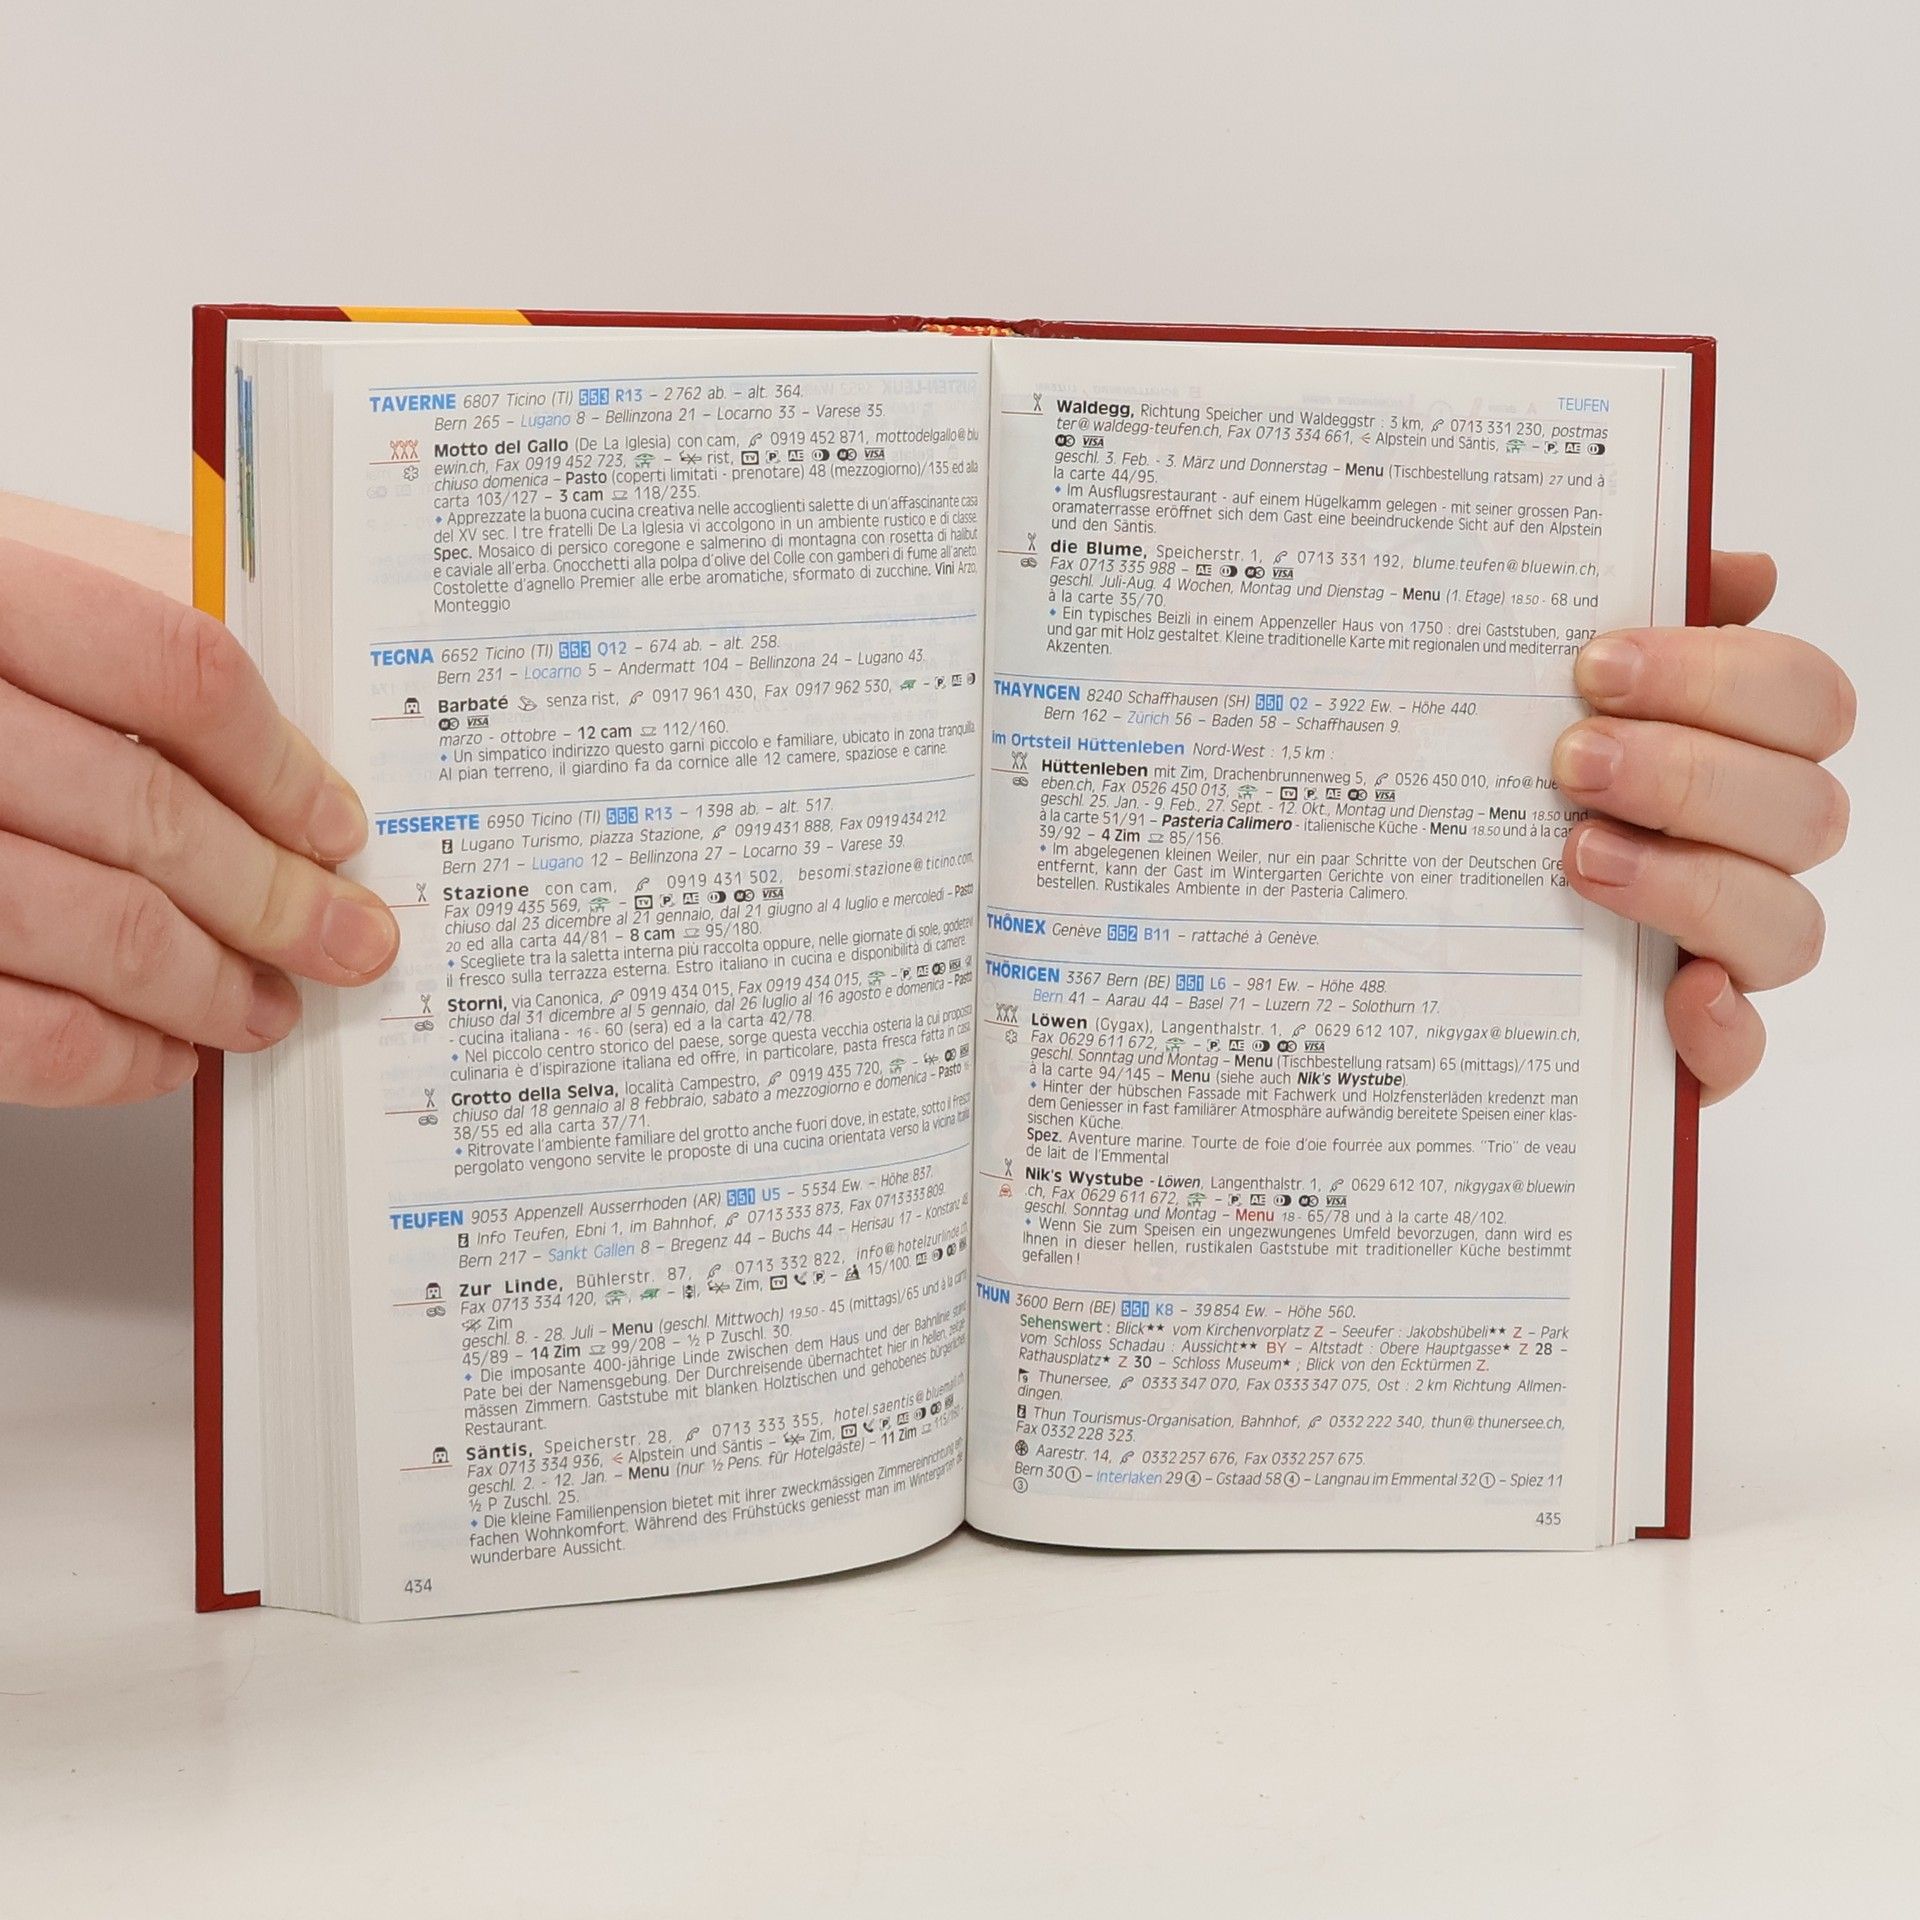 TAVERNE 6807 Ticino (TI) 553 R13 – 2 762 ab. – alt. 364.
Bern 265 – Lugano 8 – Bellinzona 21 – Locarno 33 – Varese 35.
Motto del Gallo (De La Iglesia) con cam, 0919 452 871, mottodelgallo@blu
ewin.ch, Fax 0919 452 723, – rist, TV P AE VISA
chiuso domenica – Pasto (coperti limitati - prenotare) 48 (mezzogiorno)/135 ed alla
carta 103/127 – 3 cam 118/235.
Apprezzate la buona cucina creativa nelle accoglienti salette di un'affascinante casa
del XV sec. I tre fratelli De La Iglesia vi accolgono in un ambiente rustico e di classe.
Spec. Mosaico di persico coregone e salmerino di montagna con rosetta di halibut
e caviale all'erba. Gnocchetti alla polpa d'olive del Colle con gamberi di fume all'aneto.
Costolette d'agnello Premier alle erbe aromatiche, sformato di zucchine. Vini Arzo,
Monteggio
TEGNA 6652 Ticino (TI) 553 Q12 – 674 ab. – alt. 258.
Bern 231 – Locarno 5 – Andermatt 104 – Bellinzona 24 – Lugano 43.
Barbaté senza rist, 0917 961 430, Fax 0917 962 530, – P AE
VISA
marzo - ottobre – 12 cam 112/160.
Un simpatico indirizzo questo garni piccolo e familiare, ubicato in zona tranquilla.
Al pian terreno, il giardino fa da cornice alle 12 camere, spaziose e carine.
TESSERETE 6950 Ticino (TI) 553 R13 – 1 398 ab. – alt. 517.
Lugano Turismo, piazza Stazione, 0919 431 888, Fax 0919 434 212
Bern 271 – Lugano 12 – Bellinzona 27 – Locarno 39 – Varese 39.
Stazione con cam, 0919 431 502, besomi.stazione@ticino.com,
Fax 0919 435 569, – TV P AE VISA
chiuso dal 23 dicembre al 21 gennaio, dal 21 giugno al 4 luglio e mercoledì – Pasto
20 ed alla carta 44/81 – 8 cam 95/180.
Scegliete tra la saletta interna più raccolta oppure, nelle giornate di sole, godetevi
il fresco sulla terrazza esterna. Estro italiano in cucina e disponibilità di camere.
Storni, via Canonica, 0919 434 015, Fax 0919 434 015, – P AE VISA
chiuso dal 31 dicembre al 5 gennaio, dal 26 luglio al 16 agosto e domenica – Pasto
- cucina italiana - 16 - 60 (sera) ed a la carta 42/78.
Nel piccolo centro storico del paese, sorge questa vecchia osteria la cui proposta
culinaria è d'ispirazione italiana ed offre, in particolare, pasta fresca fatta in casa.
Grotto della Selva, località Campestro, 0919 435 720, – VISA
chiuso dal 18 gennaio al 8 febbraio, sabato a mezzogiorno e domenica – Pasto
38/55 ed alla carta 37/71.
Ritrovate l'ambiente familiare del grotto anche fuori dove, in estate, sotto il fresco
pergolato vengono servite le proposte di una cucina orientata verso la vicina Italia.
TEUFEN 9053 Appenzell Ausserrhoden (AR) 551 U5 – 5 534 Ew. – Höhe 837.
Info Teufen, Ebni 1, im Bahnhof, 0713 333 873, Fax 0713 333 809.
Bern 217 – Sankt Gallen 8 – Bregenz 44 – Buchs 44 – Herisau 17 – Konstanz 48
Zur Linde, Bühlerstr. 87, 0713 332 822, info@hotelzurlinde.ch,
Fax 0713 334 120, , – , Zim, TV P – 15/100. AE VISA
Zim
geschl. 8. - 28. Juli – Menu (geschl. Mittwoch) 19.50 - 45 (mittags)/65 und à la carte
45/89 – 14 Zim 99/208 – ½ P Zuschl. 30.
Die imposante 400-jährige Linde zwischen dem Haus und der Bahnlinie stand
Pate bei der Namensgebung. Der Durchreisende übernachtet hier in hellen, zeitge-
mässen Zimmern. Gaststube mit blanken Holztischen und gehobenes bürgerliches
Restaurant.
Säntis, Speicherstr. 28, 0713 333 355, hotel.saentis@bluemail.ch,
Fax 0713 334 936, Alpstein und Säntis – Zim, TV P AE VISA
geschl. 2. - 12. Jan. – Menu (nur ½ Pens. für Hotelgäste) – 11 Zim 115/160 –
½ P Zuschl. 25.
Die kleine Familienpension bietet mit ihrer zweckmässigen Zimmereinrichtung ein-
fachen Wohnkomfort. Während des Frühstücks geniesst man im Wintergarten die
wunderbare Aussicht.
434
TEUFEN
Waldegg, Richtung Speicher und Waldeggstr : 3 km, 0713 331 230, postmas
ter@waldegg-teufen.ch, Fax 0713 334 661, Alpstein und Säntis, – P AE
VISA
geschl. 3. Feb. - 3. März und Donnerstag – Menu (Tischbestellung ratsam) 27 und à
la carte 44/95.
Im Ausflugsrestaurant - auf einem Hügelkamm gelegen - mit seiner grossen Pan-
oramaterrasse eröffnet sich dem Gast eine beeindruckende Sicht auf den Alpstein
und den Säntis.
die Blume, Speicherstr. 1, 0713 331 192, blume.teufen@bluewin.ch,
Fax 0713 335 988 – AE VISA
geschl. Juli-Aug. 4 Wochen, Montag und Dienstag – Menu (1. Etage) 18.50 - 68 und
à la carte 35/70.
Ein typisches Beizli in einem Appenzeller Haus von 1750 : drei Gaststuben, ganz
und gar mit Holz gestaltet. Kleine traditionelle Karte mit regionalen und mediterran
Akzenten.
THAYNGEN 8240 Schaffhausen (SH) 551 Q2 – 3 922 Ew. – Höhe 440.
Bern 162 – Zürich 56 – Baden 58 – Schaffhausen 9.
im Ortsteil Hüttenleben Nord-West : 1,5 km :
Hüttenleben mit Zim, Drachenbrunnenweg 5, 0526 450 010, info@hue
eben.ch, Fax 0526 450 013, – TV P AE VISA
geschl. 25. Jan. - 9. Feb., 27. Sept. - 12. Okt., Montag und Dienstag – Menu 18.50 und
à la carte 51/91 – Pasteria Calimero - italienische Küche - Menu 18.50 und à la car
39/92 – 4 Zim 85/156.
Im abgelegenen kleinen Weiler, nur ein paar Schritte von der Deutschen Gre
entfernt, kann der Gast im Wintergarten Gerichte von einer traditionellen Kar
bestellen. Rustikales Ambiente in der Pasteria Calimero.
THÔNEX Genève 552 B11 – rattaché à Genève.
THÖRIGEN 3367 Bern (BE) 551 L6 – 981 Ew. – Höhe 488.
Bern 41 – Aarau 44 – Basel 71 – Luzern 72 – Solothurn 17.
Löwen (Gygax), Langenthalstr. 1, 0629 612 107, nikgygax@bluewin.ch,
Fax 0629 611 672, – P AE VISA
geschl. Sonntag und Montag – Menu (Tischbestellung ratsam) 65 (mittags)/175 und
à la carte 94/145 – Menu (siehe auch Nik's Wystube).
Hinter der hübschen Fassade mit Fachwerk und Holzfensterläden kredenzt man
dem Geniesser in fast familiärer Atmosphäre aufwändig bereitete Speisen einer klas-
sischen Küche.
Spez. Aventure marine. Tourte de foie d'oie fourrée aux pommes. "Trio" de veau
de lait de l'Emmental
Nik's Wystube - Löwen, Langenthalstr. 1, 0629 612 107, nikgygax@bluewin
.ch, Fax 0629 611 672, – P AE VISA
geschl. Sonntag und Montag – Menu 18 - 65/78 und à la carte 48/102.
Wenn Sie zum Speisen ein ungezwungenes Umfeld bevorzugen, dann wird es
Ihnen in dieser hellen, rustikalen Gaststube mit traditioneller Küche bestimmt
gefallen !
THUN 3600 Bern (BE) 551 K8 – 39 854 Ew. – Höhe 560.
Sehenswert : Blick★★ vom Kirchenvorplatz Z – Seeufer : Jakobshübeli★★ Z – Park
vom Schloss Schadau : Aussicht★★ BY – Altstadt : Obere Hauptgasse★ Z 28 –
Rathausplatz★ Z 30 – Schloss Museum★ ; Blick von den Ecktürmen Z.
Thunersee, 0333 347 070, Fax 0333 347 075, Ost : 2 km Richtung Allmen-
dingen.
Thun Tourismus-Organisation, Bahnhof, 0332 222 340, thun@thunersee.ch,
Fax 0332 228 323.
Aarestr. 14, 0332 257 676, Fax 0332 257 675.
Bern 30 ① – Interlaken 29 ④ – Gstaad 58 ④ – Langnau im Emmental 32 ① – Spiez 11
③
435